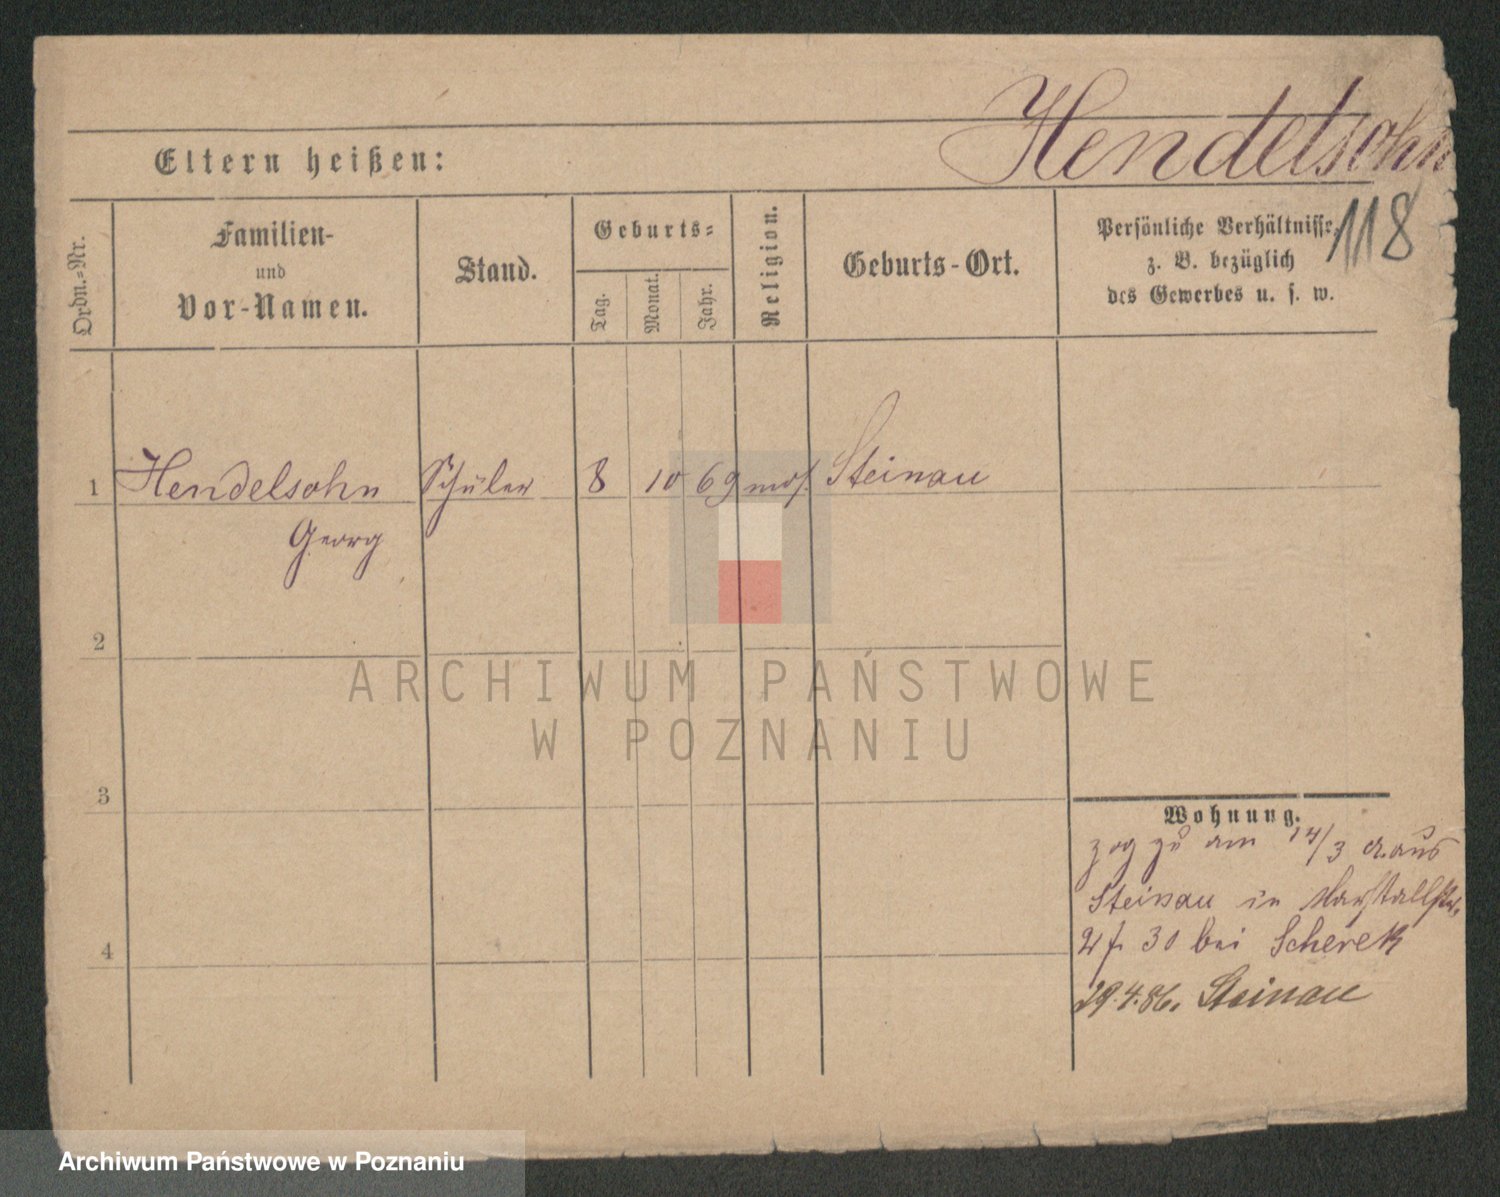 Hendelsohn
Eltern heißen:
118
Ordn.-Nr.
Familien-
und
Vor-Namen.
Stand.
Geburts-
Tag.
Monat.
Jahr.
Religion.
Geburts-Ort.
Persönliche Verhältnisse,
z. B. bezüglich
des Gewerbes u. s. w.
1 Hendelsohn Schüler 8 10 69 mos. Steinau
Georg
2
3
4
Wohnung.
zog zu am 14/3 cr. aus
Steinau in Marstallstr.
30 bei Scherek
29.4.86. Steinau
ARCHIWUM PAŃSTWOWE
W POZNANIU
Archiwum Państwowe w Poznaniu